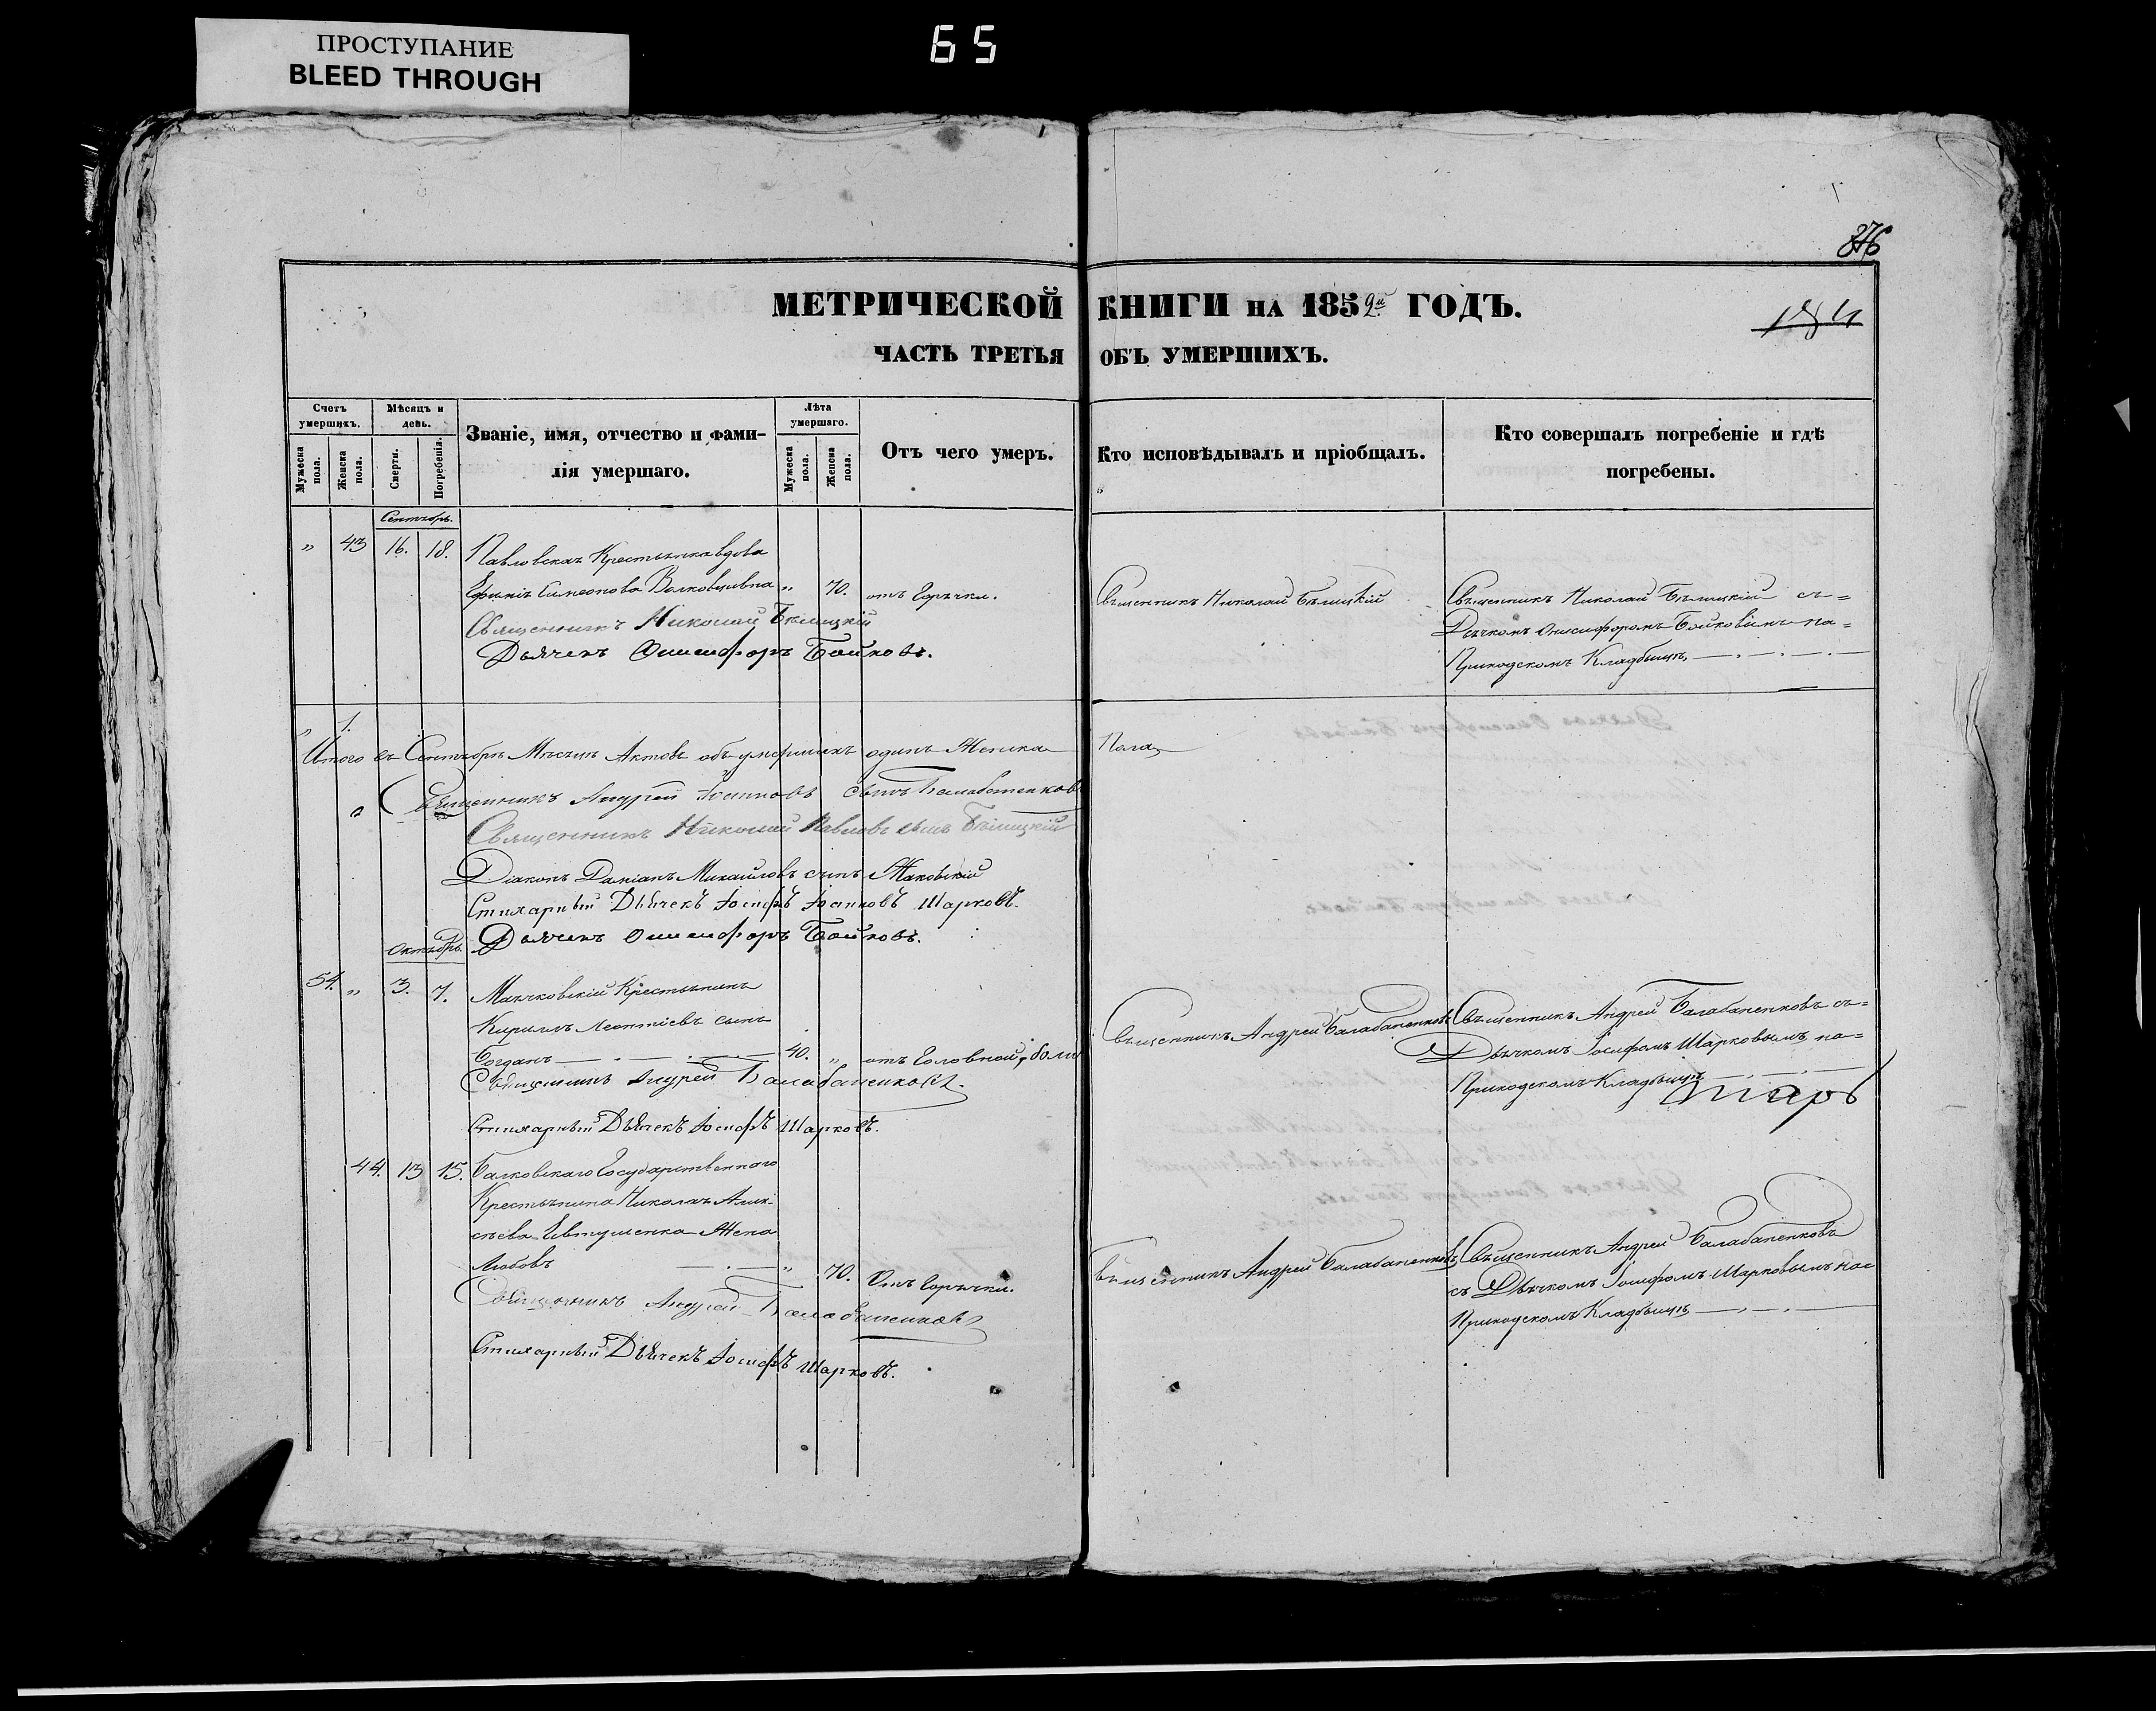 ПРОСТУПАНИЕ
BLEED THROUGH
65
276
МЕТРИЧЕСКОЙ КНИГИ НА 1852й ГОДЪ.
ЧАСТЬ ТРЕТЬЯ ОБЪ УМЕРШИХЪ.
Счетъ умершихъ.
Мужеска пола.
Женска пола.
Мѣсяцъ и день.
Смерти.
Погребенія.
Званіе, имя, отчество и фами-
лія умершаго.
Лѣта умершаго.
Мужеска пола.
Женска пола.
Отъ чего умеръ.
Кто исповѣдывалъ и пріобщалъ.
Кто совершалъ погребеніе и гдѣ
погребены.
Сентябрь.
" 43 16. 18. Павловская Крестьянка вдова
Симеонова " 70. отъ Горячки. Священникъ Николай Бѣлицкій Священникъ Николай Бѣлицкій съ=
Священникъ Николай Бѣлицкій
Дьячкомъ Онисифоромъ Бойковымъ на=
Дьячекъ Онисифоръ Бойковъ.
Приходскомъ Кладбищѣ,
" 1.
Итого въ Сентябрѣ Мѣсяцѣ Актовъ объ умершихъ одинъ Женска Пола,
Священникъ Андрей Іоанновъ сынъ Балабаненковъ
Священникъ Николай Павловъ сынъ Бѣлицкій
Діаконъ Даміанъ Михайловъ сынъ Маковскій
Стихарный Дьячекъ Іосифъ Іоанновъ Шарковъ.
Дьячекъ Онисифоръ Бойковъ.
Октябрь.
54. " 3. 7. Маячковскій Крестьянинъ
Кириллъ Леонтіевъ сынъ
Богданъ 40. " отъ Головной боли Священникъ Андрей Балабаненковъ Священникъ Андрей Балабаненковъ съ=
Дьячкомъ Іосифомъ Шарковымъ на=
Приходскомъ Кладбищѣ
Священникъ Андрей Балабаненковъ.
Стихарный Дьячекъ Іосифъ Шарковъ.
44. 13 15. Балковскаго Государственнаго
Крестьянина Николая Алек-
сѣева Евтушенка Жена
Любовь " 70. Отъ Горячки. Священникъ Андрей Балабаненковъ Священникъ Андрей Балабаненковъ
съ Дьячкомъ Іосифомъ Шарковымъ на=
Приходскомъ Кладбищѣ
Священникъ Андрей Балабаненковъ
Стихарный Дьячекъ Іосифъ Шарковъ.